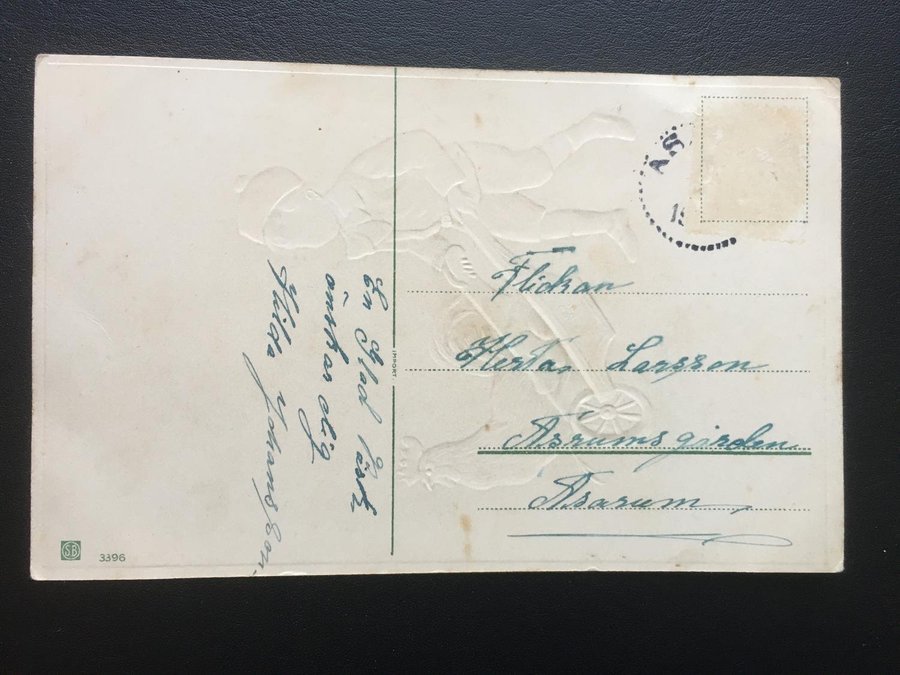 En Glad Påsk
önskar dig
Hilda Johansson.
IMPORT
AS
19
Flickan
Herta Larsson
Asrumsgården
Asarum,
SB 3396